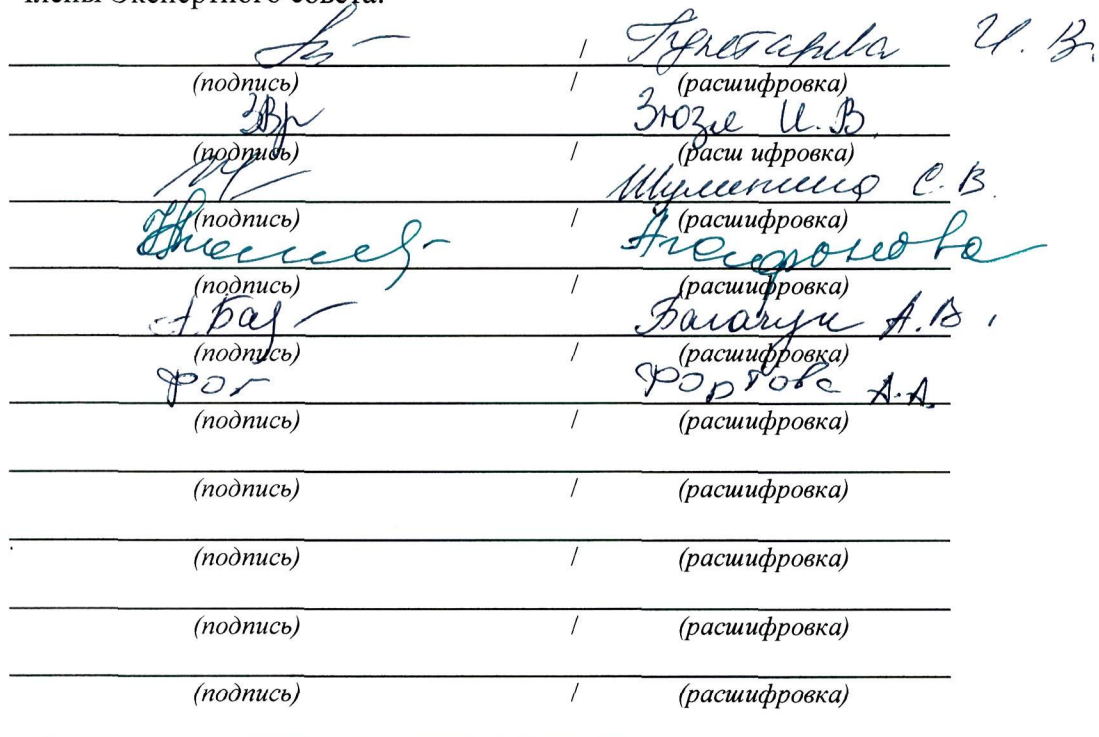 члены Экспертного совета:
/ И. В.
(подпись) / (расшифровка)
Зюзя И. В.
(подпись) / (расш ифровка)
С. В.
(подпись) / (расшифровка)
Агафонова
(подпись) / (расшифровка)
А. Баг Балачук А. В.
(подпись) / (расшифровка)
Фог Фортова А.А.
(подпись) / (расшифровка)
(подпись) / (расшифровка)
(подпись) / (расшифровка)
(подпись) / (расшифровка)
(подпись) / (расшифровка)